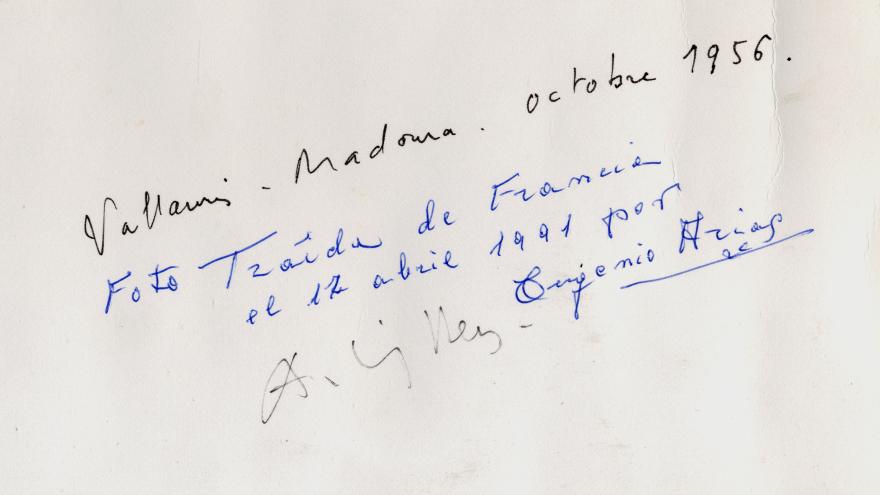 Vallauris - Madoura. octobre 1956.
Foto Traída de Francia
el 17 abril 1991 por
Eugenio Arias
A.